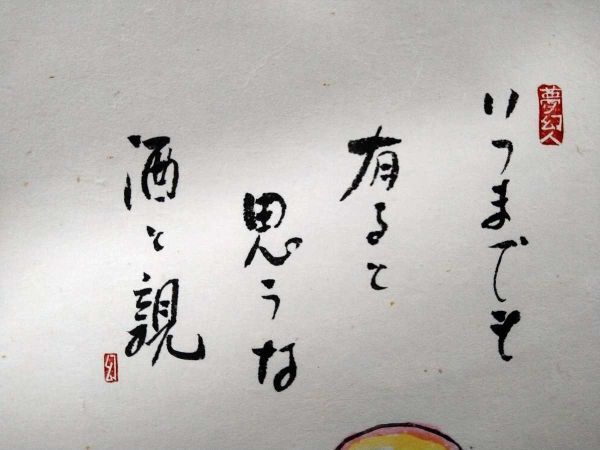 夢幻人
いつまでも
有ると
思うな
酒と親